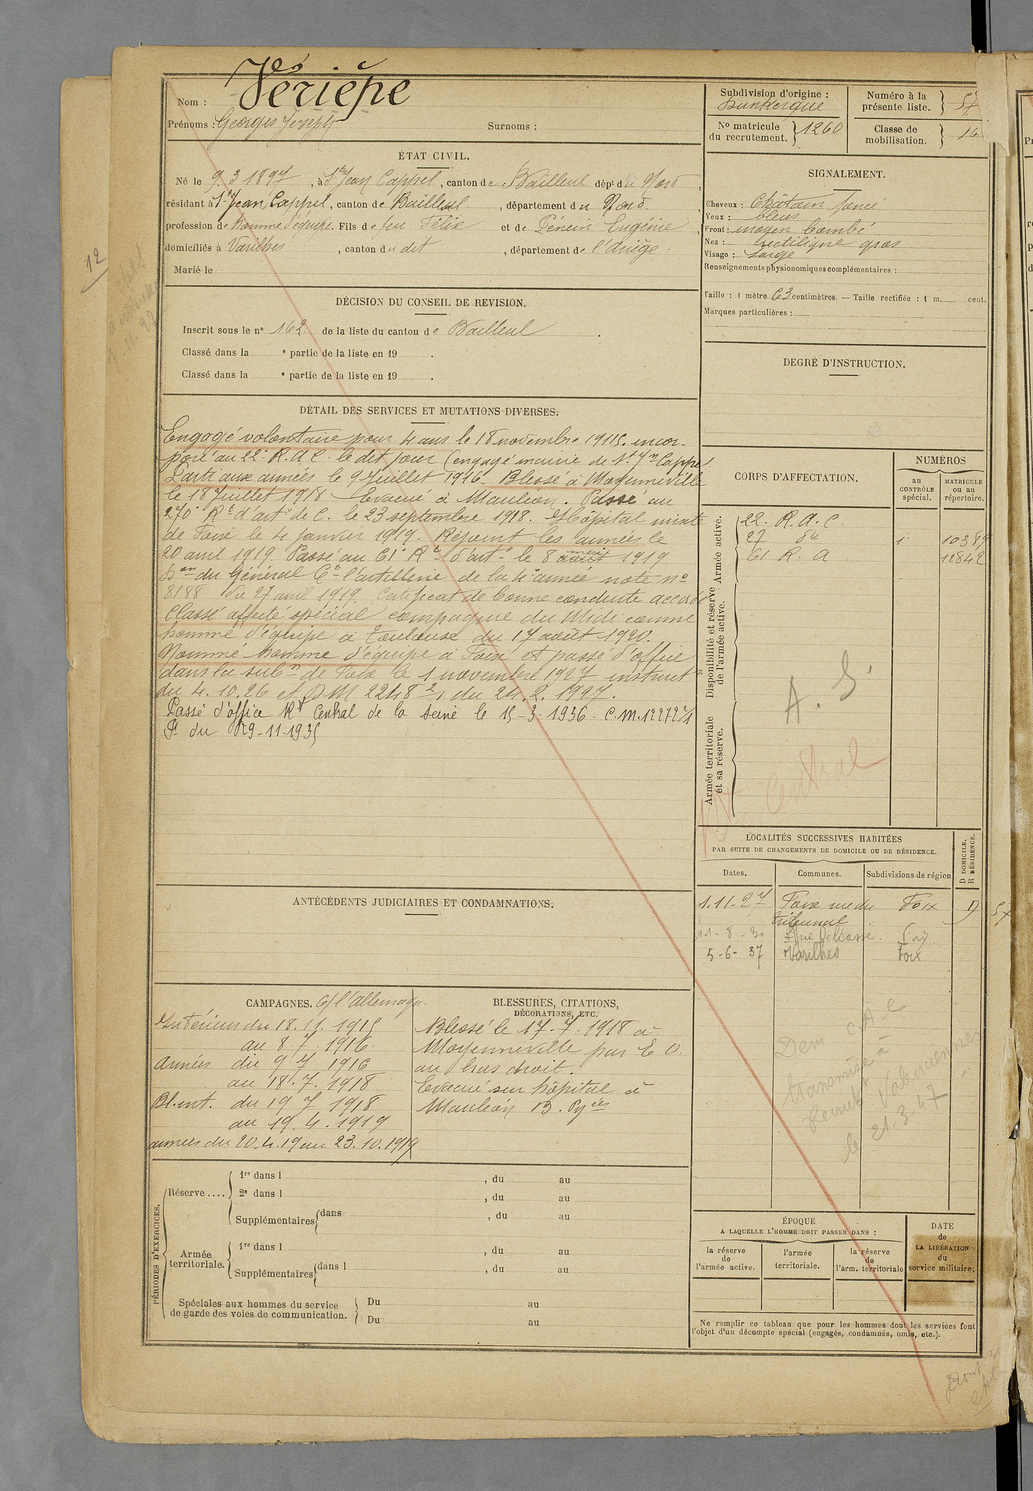 Nom : Vérièpe
Prénoms : Georges Joseph Surnoms :
ÉTAT CIVIL.
Né le 9.3 1897, à St Jean Cappel, canton de Bailleul dépt du Nord,
résidant à St Jean Cappel, canton de Bailleul, département du Nord,
profession de homme d'équipe. Fils de feu Félix et de Eugénie,
domiciliés à Varilhes, canton du dit, département de l'Ariège.
Marié le
DÉCISION DU CONSEIL DE REVISION.
Inscrit sous le n° 162 de la liste du canton de Bailleul.
Classé dans la e partie de la liste en 19 .
Classé dans la e partie de la liste en 19 .
DÉTAIL DES SERVICES ET MUTATIONS DIVERSES.
Engagé volontaire pour 4 ans le 18 novembre 1915. incor-
poré au 22e R.A.C. le dit jour (engagé mairie de St Jn Cappel
Parti aux armées le 9 juillet 1916. Blessé à Moyenneville
le 18 juillet 1918 Evacué à Mauléon. Passé au
270e Rt d'artie de C. le 23 septembre 1918. Hôpital mixte
de Foix le 4 janvier 1919. Rejoint les armées le
20 avril 1919. Passé au 61e Rt d'artie le 8 août 1919
du Général Ct l'artillerie de la 4e armée note no
8188 du 27 avril 1919. Certificat de bonne conduite accordé
Classé affecté spécial compagnie du Midi comme
homme d'équipe à Toulouse du 17 août 1920.
Nommé homme d'équipe à Foix et passé d'office
dans la subon de Foix le 1 novembre 1927 instruct
du 4.10.26 et DM 2248 du 24.2.1927.
Passé d'office Rt Central de la Seine le 15-3-1936. C.M. 12272 2/1
P. du 29-11-1935
ANTÉCÉDENTS JUDICIAIRES ET CONDAMNATIONS.
CAMPAGNES. C/ l'Allemagne.
Intérieur du 18.11.1915
au 8 7 1916
Armées du 9 7 1916
au 18.7.1918
Bl. int. du 19 7 1918
au 19.4.1919
armées du 20.4.19 au 23.10.1919
BLESSURES, CITATIONS,
DÉCORATIONS, ETC.
Blessé le 17.7.1918 à
Moyenneville par E O.
au bras droit.
Evacué sur hôpital à
Mauléon B. Pyies
PÉRIODES D'EXERCICES.
Réserve ....
1re dans l , du au
2e dans l , du au
Supplémentaires dans , du au
Armée territoriale.
1re dans l , du au
Supplémentaires dans l , du au
Spéciales aux hommes du service
de garde des voies de communication.
Du au
Du au
Subdivision d'origine :
Dunkerque
Numéro à la
présente liste.
57
No matricule
du recrutement.
1260
Classe de
mobilisation.
16
SIGNALEMENT.
Cheveux : Châtain foncé
Yeux : bleus
Front : moyen bombé
Nez : rectiligne gros
Visage : large
Renseignements physionomiques complémentaires :
Taille : 1 mètre 63 centimètres. — Taille rectifiée : 1 m. cent.
Marques particulières :
DEGRÉ D'INSTRUCTION.
CORPS D'AFFECTATION.
NUMÉROS
au
CONTRÔLE
spécial.
MATRICULE
ou au
répertoire.
Armée active.
22. R.A.C.
27 do 10389
61 R.A 12842
Disponibilité et réserve
de l'armée active.
A. S.
Armée territoriale
et sa réserve.
Rt Central
LOCALITÉS SUCCESSIVES HABITÉES
PAR SUITE DE CHANGEMENTS DE DOMICILE OU DE RÉSIDENCE.
D DOMICILE.
R RÉSIDENCE.
Dates. Communes. Subdivisions de région
1.11.27 Foix rue du Foix D
tribunal
11-8-30 Rue Delcassé Foix
5-6-37 Varilhes Foix
Dem C.A.C
transmise à
Recrut Valenciennes
le 21.3.47
ÉPOQUE
A LAQUELLE L'HOMME DOIT PASSER DANS :
la réserve
de
l'armée active.
l'armée
territoriale.
la réserve
de
l'arm. territoriale
DATE
de
LA LIBÉRATION
du
service militaire.
Ne remplir ce tableau que pour les hommes dont les services font
l'objet d'un décompte spécial (engagés, condamnés, omis, etc.).
12